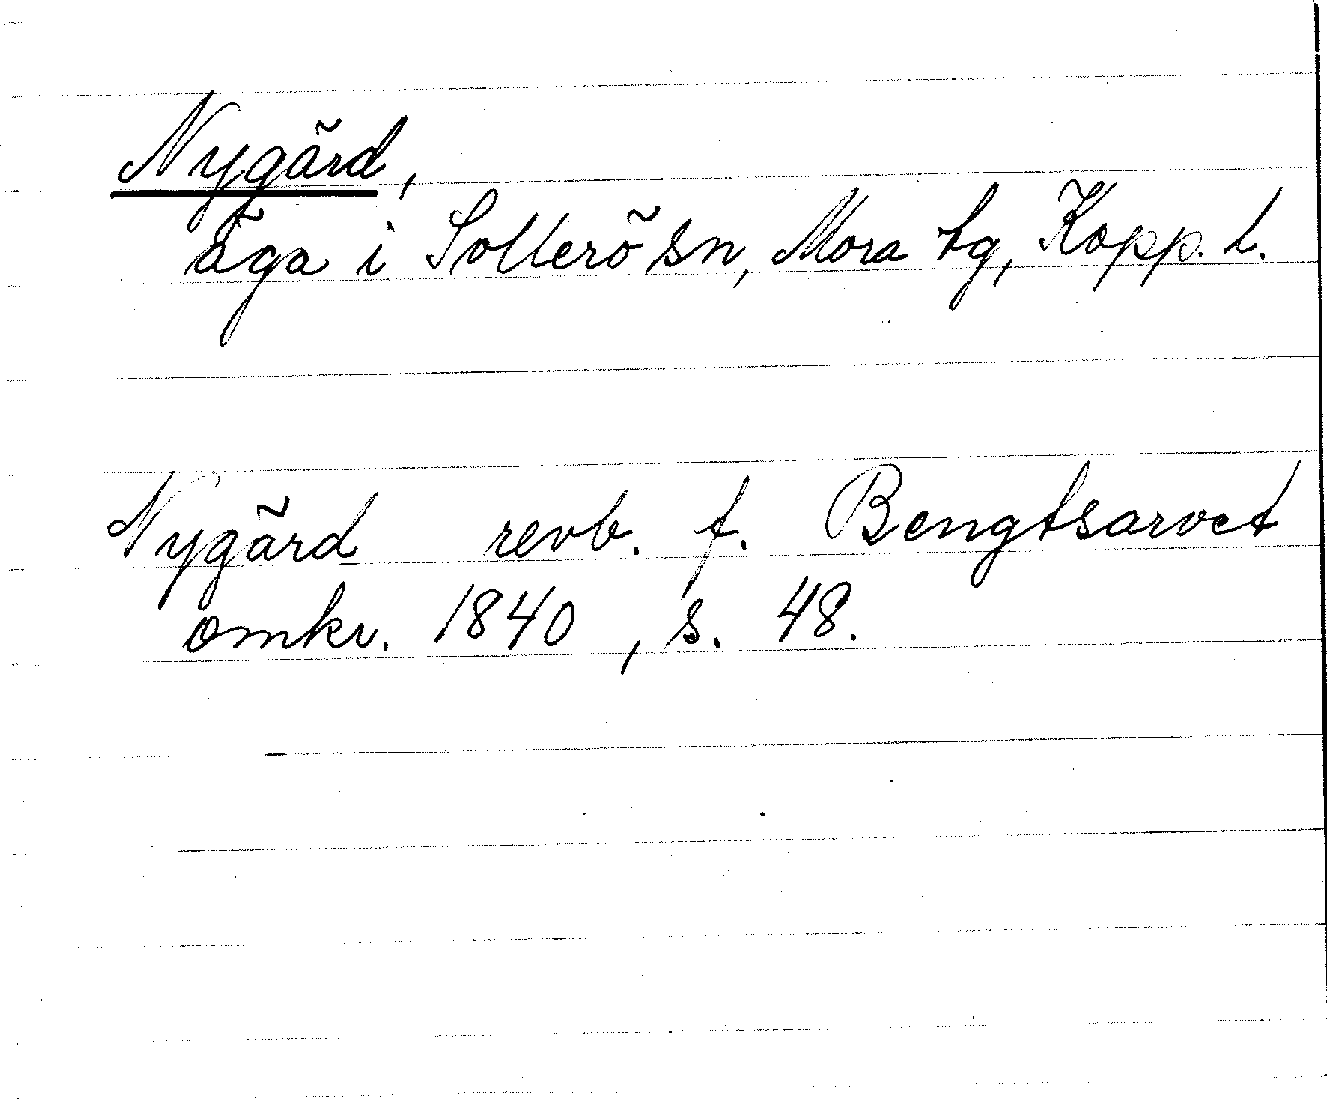 Nygård,
äga i Sollerö sn, Mora tg, Kopp. l.
Nygård revb. f. Bengtsarvet
omkr. 1840, s. 48.